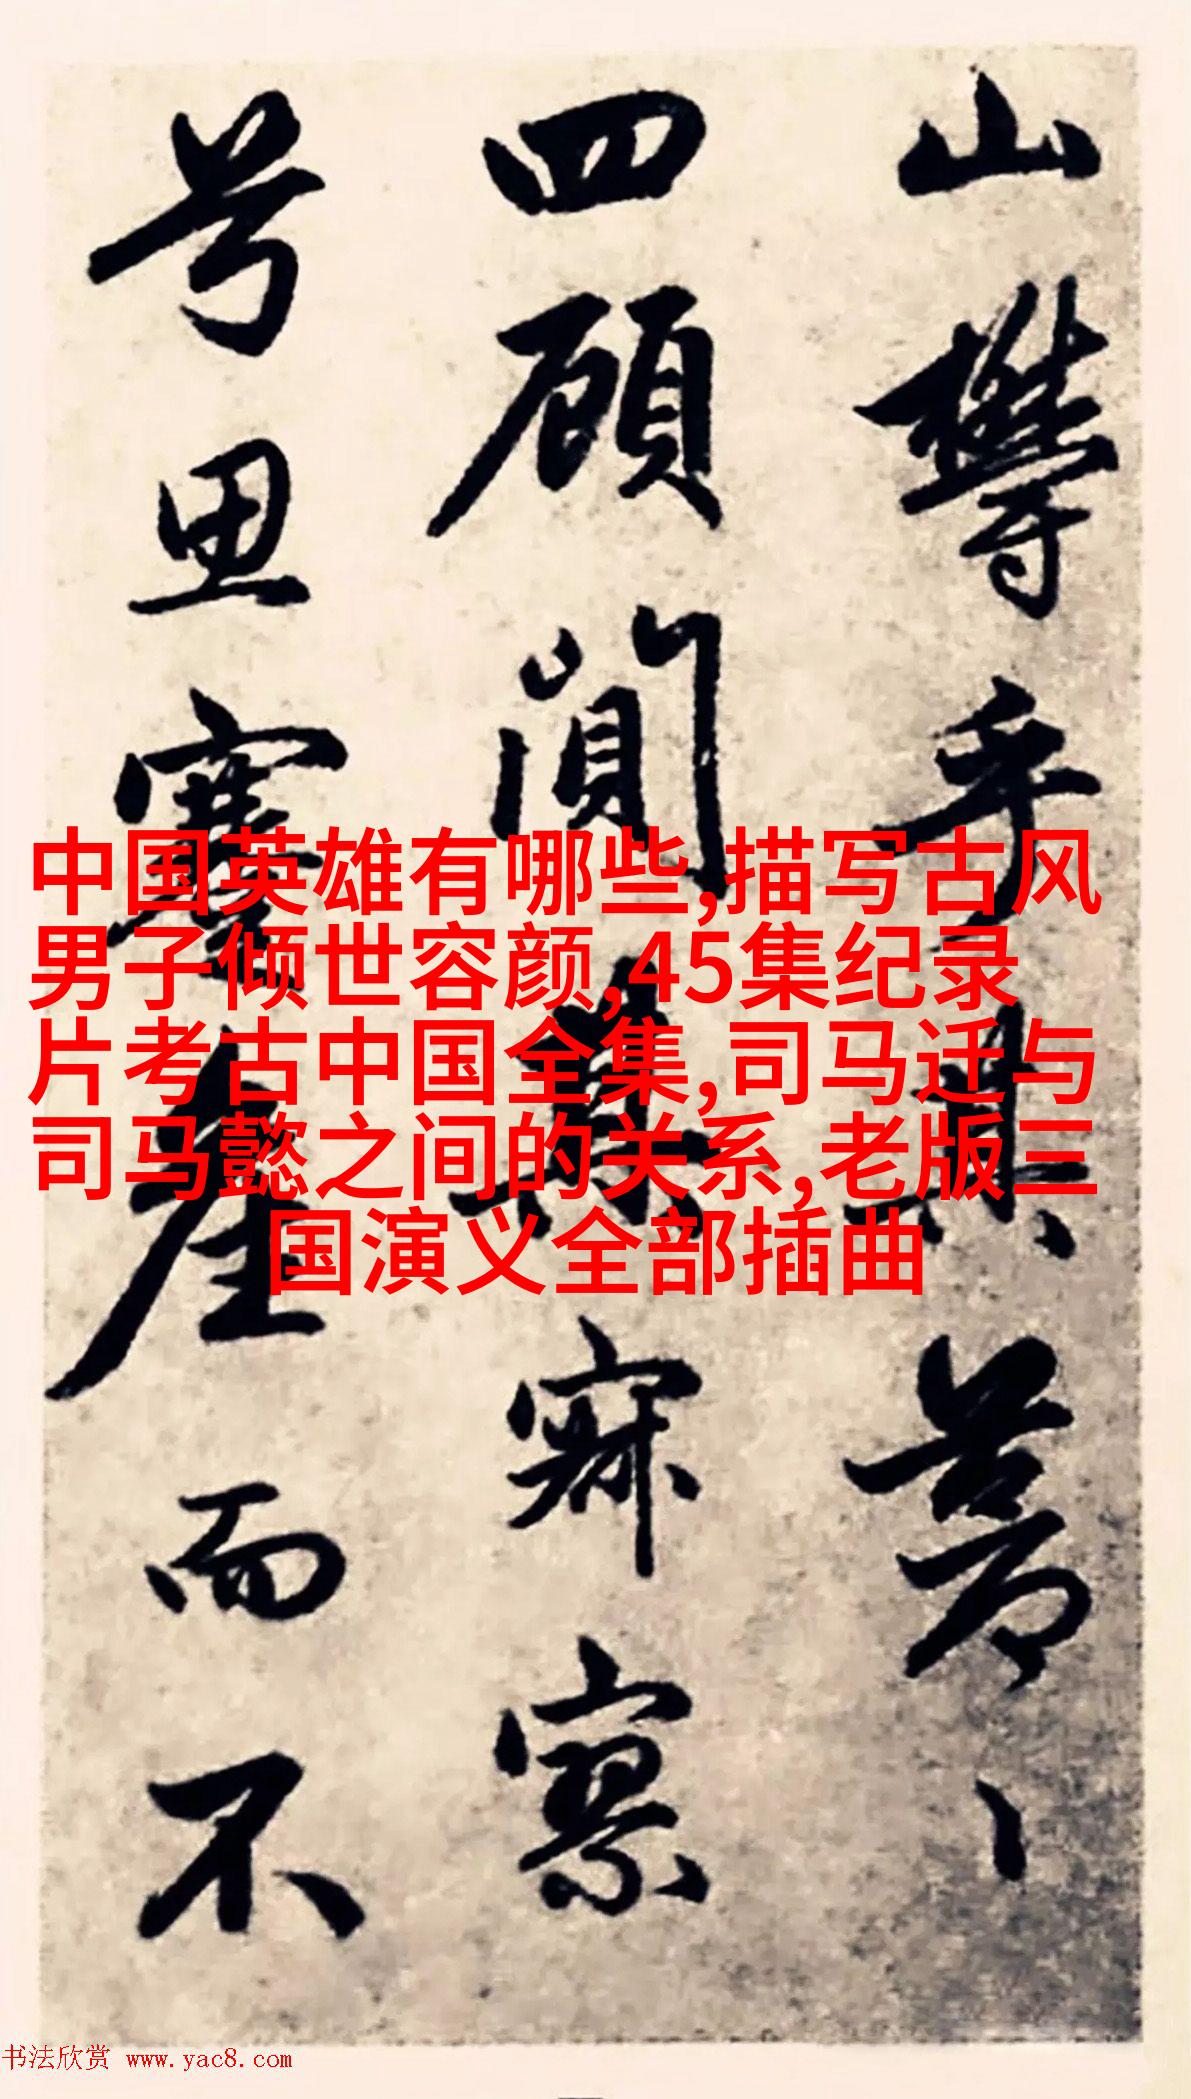 山欝乎其蒼〻
四顧闃寂寥
兮思蹇產而不
中国英雄有哪些,描写古风
男子倾世容颜,45集纪录
片考古中国全集,司马迁与
司马懿之间的关系,老版三
国演义全部插曲
书法欣赏 www.yac8.com